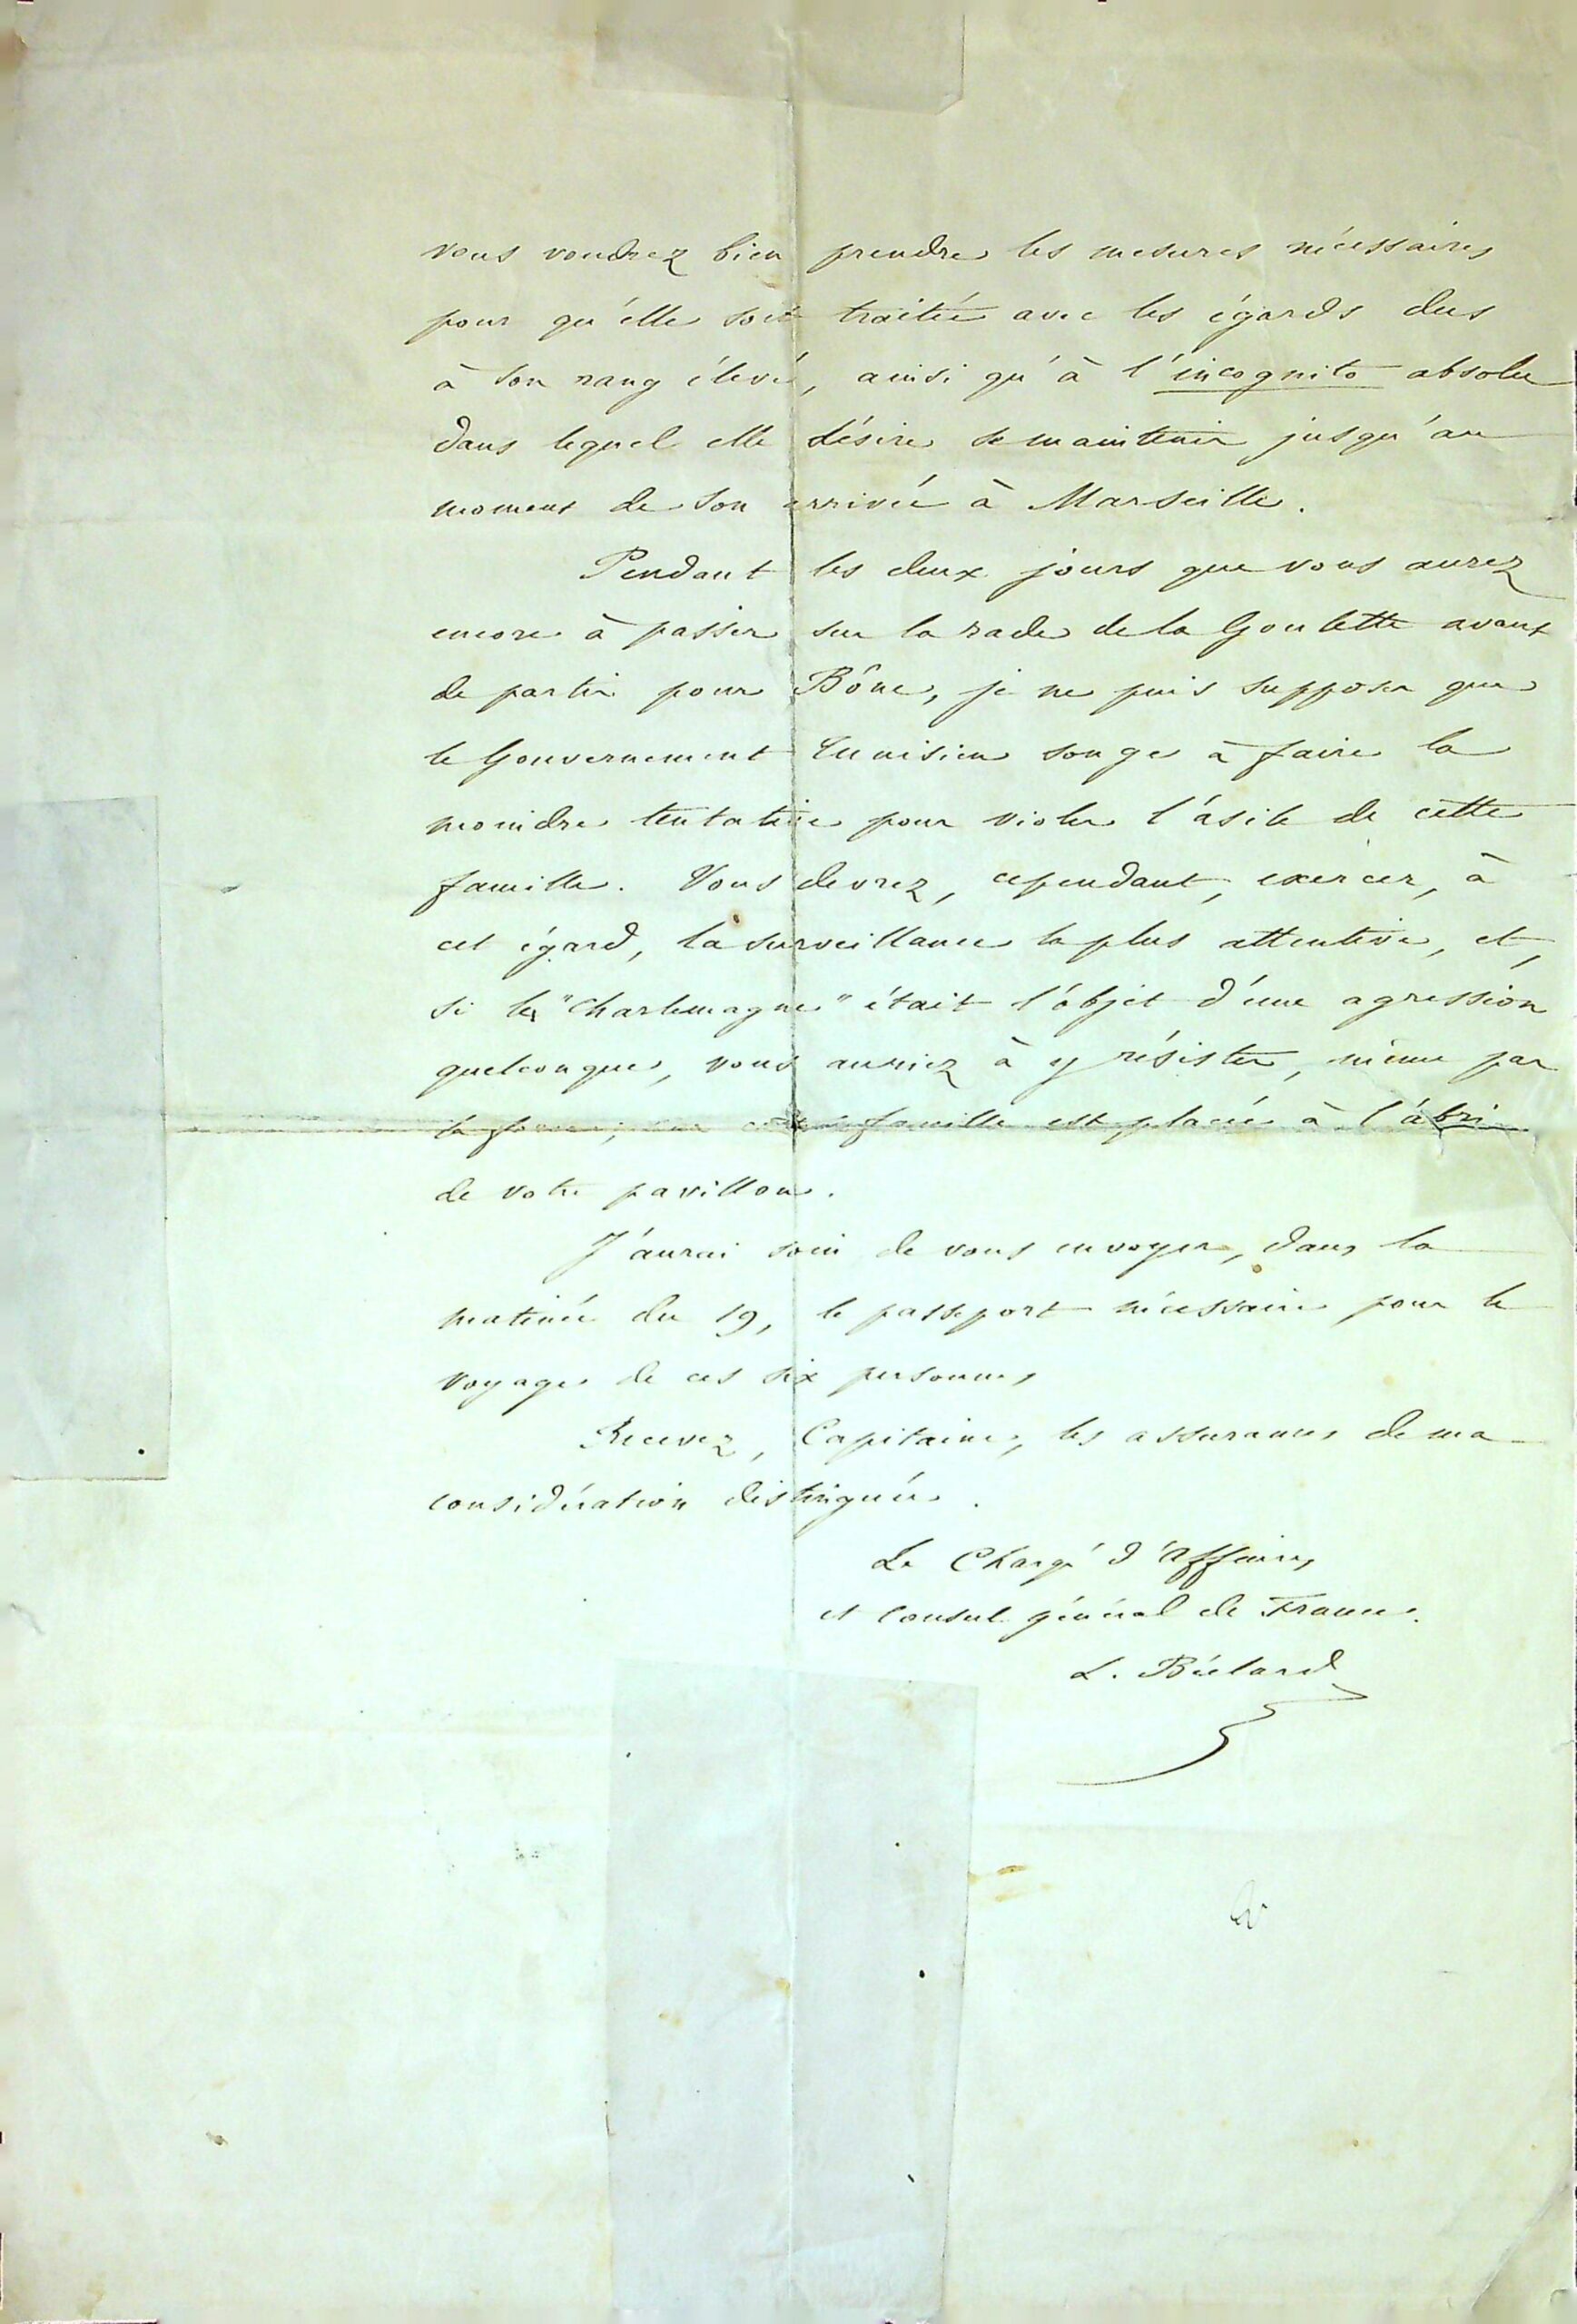 vous voudrez bien prendre les mesures nécessaires
pour qu'elle soit traitée avec les égards dus
à son rang élevé, ainsi qu'à l'incognito absolu
dans lequel elle désire se maintenir jusqu'au
moment de son arrivée à Marseille.
Pendant les deux jours que vous aurez
encore à passer sur la rade de la Goulette avant
de partir pour Bône, je ne puis supposer que
le Gouvernement Tunisien songe à faire la
moindre tentative pour violer l'asile de cette
famille. Vous devrez, cependant, exercer, à
cet égard, la surveillance la plus attentive, et,
si le "Charlemagne" était l'objet d'une agression
quelconque, vous auriez à y résister, même par
la force; car cette famille est placée à l'abri
de votre pavillon.
J'aurai soin de vous envoyer, dans la
matinée du 19, le passeport nécessaire pour le
voyage de ces six personnes
Recevez, Capitaine, les assurances de ma
considération distinguée.
Le Chargé d'Affaires
et Consul général de France.
L. Béclard